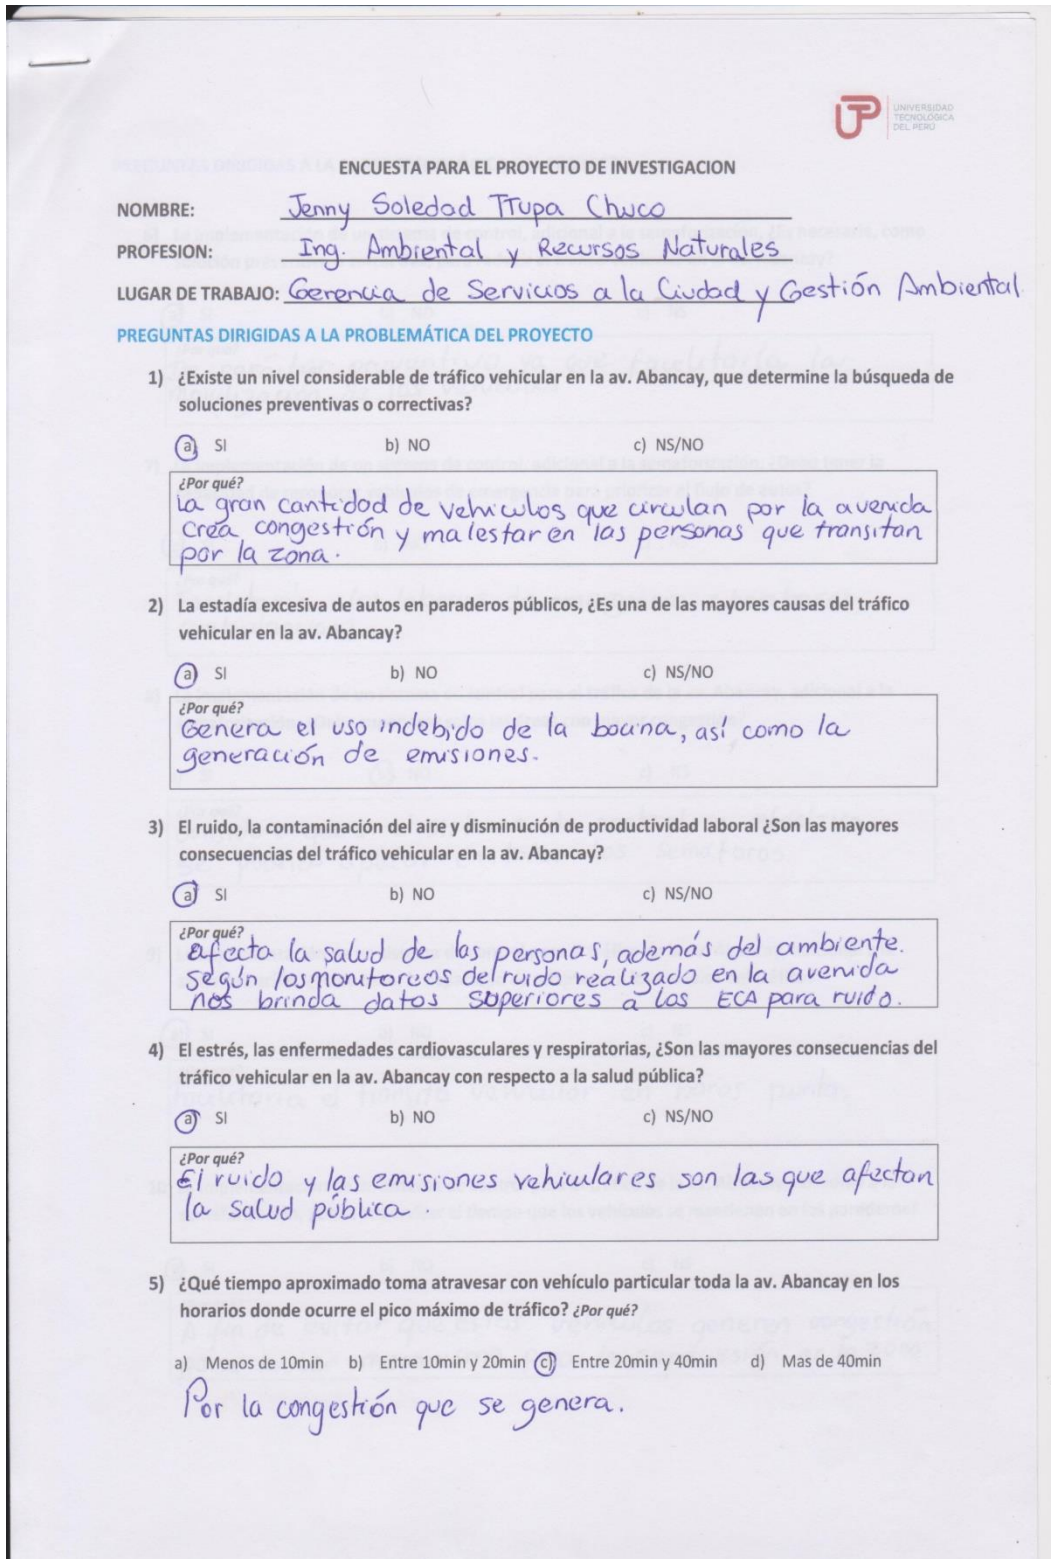 UNIVERSIDAD
TECNOLÓGICA
DEL PERÚ
ENCUESTA PARA EL PROYECTO DE INVESTIGACION
NOMBRE: Jenny Soledad Ttupa Chuco
PROFESION: Ing. Ambiental y Recursos Naturales
LUGAR DE TRABAJO: Gerencia de Servicios a la Ciudad y Gestión Ambiental
PREGUNTAS DIRIGIDAS A LA PROBLEMÁTICA DEL PROYECTO
1) ¿Existe un nivel considerable de tráfico vehicular en la av. Abancay, que determine la búsqueda de
soluciones preventivas o correctivas?
a) SI b) NO c) NS/NO
¿Por qué?
la gran cantidad de vehiculos que circulan por la avenida
crea congestión y malestar en las personas que transitan
por la zona.
2) La estadía excesiva de autos en paraderos públicos, ¿Es una de las mayores causas del tráfico
vehicular en la av. Abancay?
a) SI b) NO c) NS/NO
¿Por qué?
Genera el uso indebido de la bocina, así como la
generación de emisiones.
3) El ruido, la contaminación del aire y disminución de productividad laboral ¿Son las mayores
consecuencias del tráfico vehicular en la av. Abancay?
a) SI b) NO c) NS/NO
¿Por qué?
afecta la salud de las personas, además del ambiente.
Según los monitoreos del ruido realizado en la avenida
nos brinda datos superiores a los ECA para ruido.
4) El estrés, las enfermedades cardiovasculares y respiratorias, ¿Son las mayores consecuencias del
tráfico vehicular en la av. Abancay con respecto a la salud pública?
a) SI b) NO c) NS/NO
¿Por qué?
El ruido y las emisiones vehiculares son las que afectan
la salud pública.
5) ¿Qué tiempo aproximado toma atravesar con vehículo particular toda la av. Abancay en los
horarios donde ocurre el pico máximo de tráfico? ¿Por qué?
a) Menos de 10min b) Entre 10min y 20min c) Entre 20min y 40min d) Mas de 40min
Por la congestión que se genera.